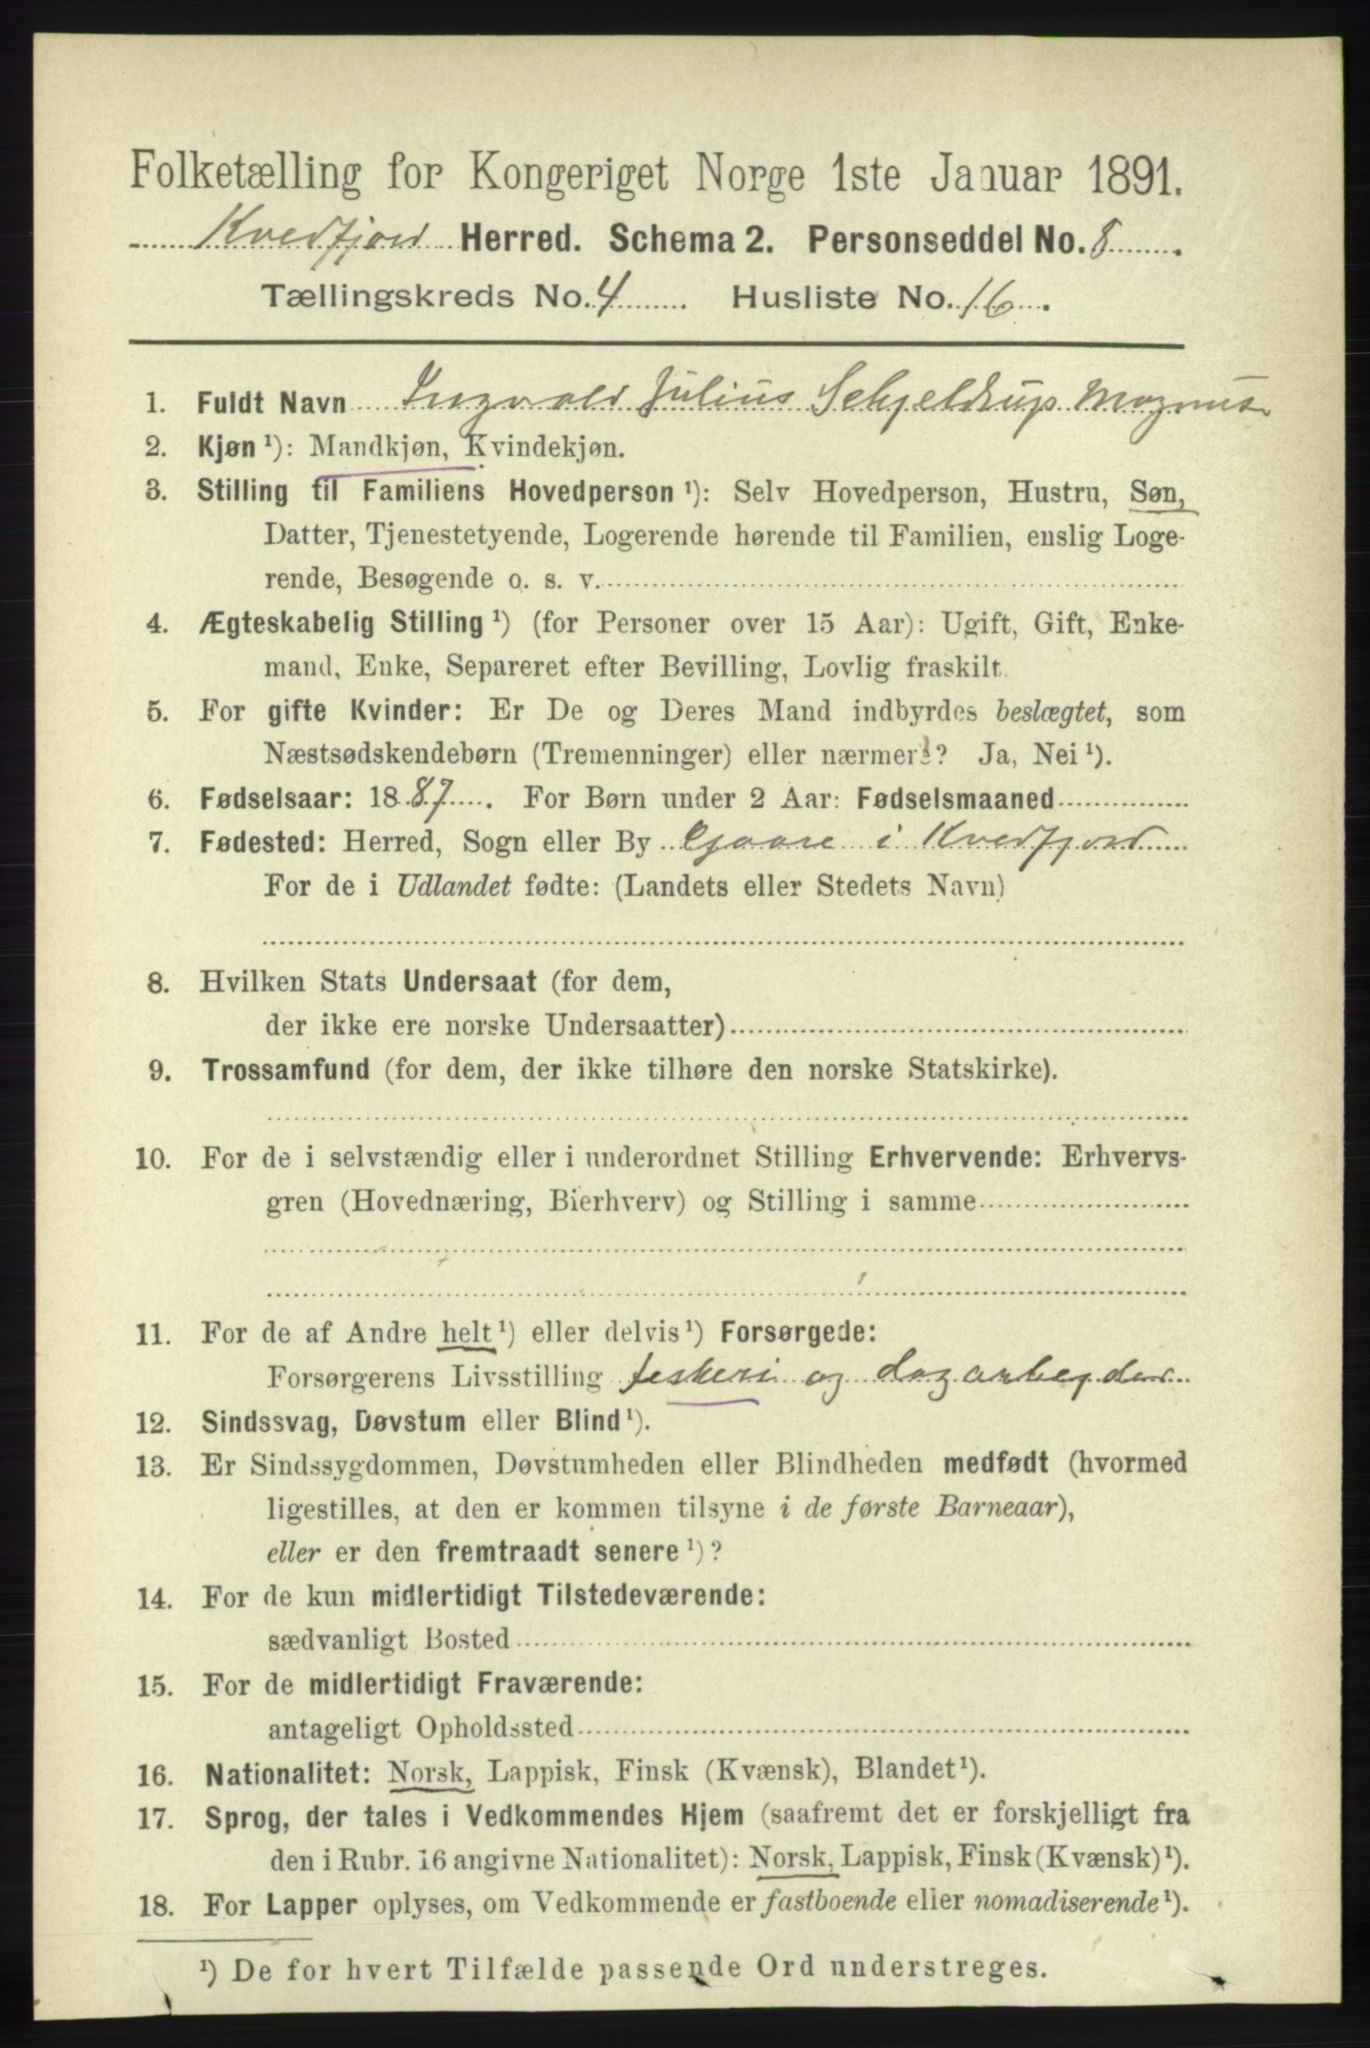 Folketælling for Kongeriget Norge 1ste Januar 1891.
Kvedfjord Herred. Schema 2. Personseddel No. 8.
Tællingskreds No. 4. Husliste No. 16.
1. Fuldt Navn Ingvald Julius Schjeldrup Magnus
2. Kjøn ¹): Mandkjøn, Kvindekjøn.
3. Stilling til Familiens Hovedperson ¹): Selv Hovedperson, Hustru, Søn,
Datter, Tjenestetyende, Logerende hørende til Familien, enslig Loge-
rende, Besøgende o. s. v.
4. Ægteskabelig Stilling ¹) (for Personer over 15 Aar): Ugift, Gift, Enke-
mand, Enke, Separeret efter Bevilling, Lovlig fraskilt.
5. For gifte Kvinder: Er De og Deres Mand indbyrdes beslægtet, som
Næstsødskendebørn (Tremenninger) eller nærmere? Ja, Nei ¹).
6. Fødselsaar: 1887. For Børn under 2 Aar: Fødselsmaaned
7. Fødested: Herred, Sogn eller By i Kvedfjord
For de i Udlandet fødte: (Landets eller Stedets Navn)
8. Hvilken Stats Undersaat (for dem,
der ikke ere norske Undersaatter)
9. Trossamfund (for dem, der ikke tilhøre den norske Statskirke).
10. For de i selvstændig eller i underordnet Stilling Erhvervende: Erhvervs-
gren (Hovednæring, Bierhverv) og Stilling i samme
11. For de af Andre helt ¹) eller delvis ¹) Forsørgede:
Forsørgerens Livsstilling feskeri og dagarbeyder
12. Sindssvag, Døvstum eller Blind ¹).
13. Er Sindssygdommen, Døvstumheden eller Blindheden medfødt (hvormed
ligestilles, at den er kommen tilsyne i de første Barneaar),
eller er den fremtraadt senere ¹)?
14. For de kun midlertidigt Tilstedeværende:
sædvanligt Bosted
15. For de midlertidigt Fraværende:
antageligt Opholdssted
16. Nationalitet: Norsk, Lappisk, Finsk (Kvænsk), Blandet ¹).
17. Sprog, der tales i Vedkommendes Hjem (saafremt det er forskjelligt fra
den i Rubr. 16 angivne Nationalitet): Norsk, Lappisk, Finsk (Kvænsk) ¹).
18. For Lapper oplyses, om Vedkommende er fastboende eller nomadiserende ¹).
¹) De for hvert Tilfælde passende Ord understreges.